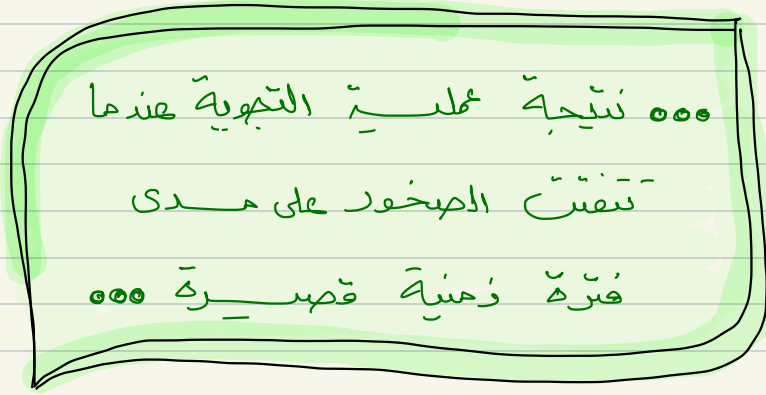 ... نتيجة عملية التجوية عندما
تتفتت الصخور على مدى
فترة زمنية قصيرة ...